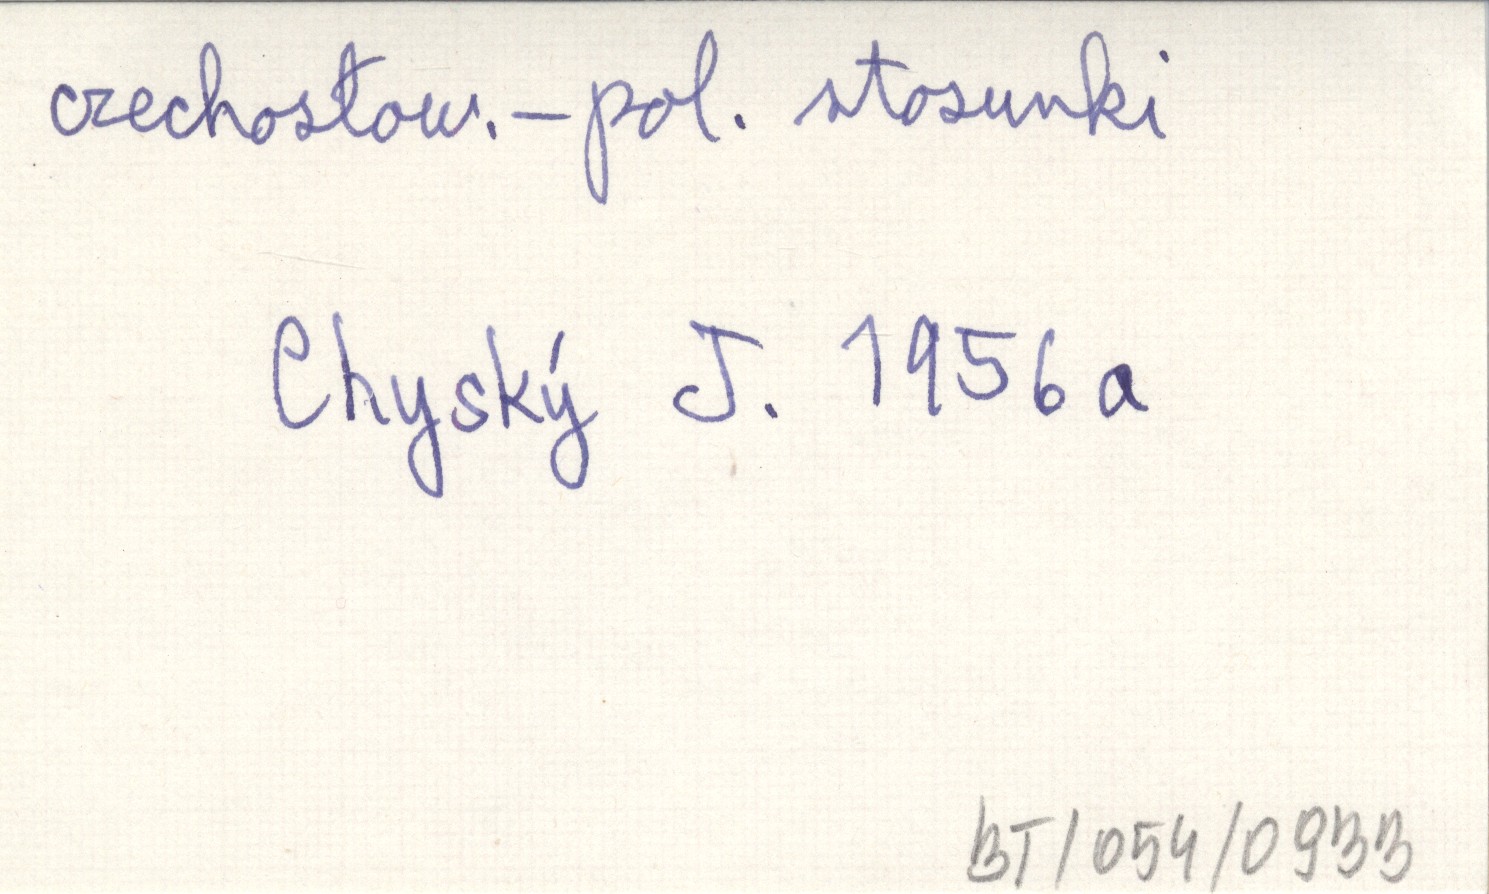 czechosłow.-pol. stosunki
Chyský J. 1956a
BT/054/0933